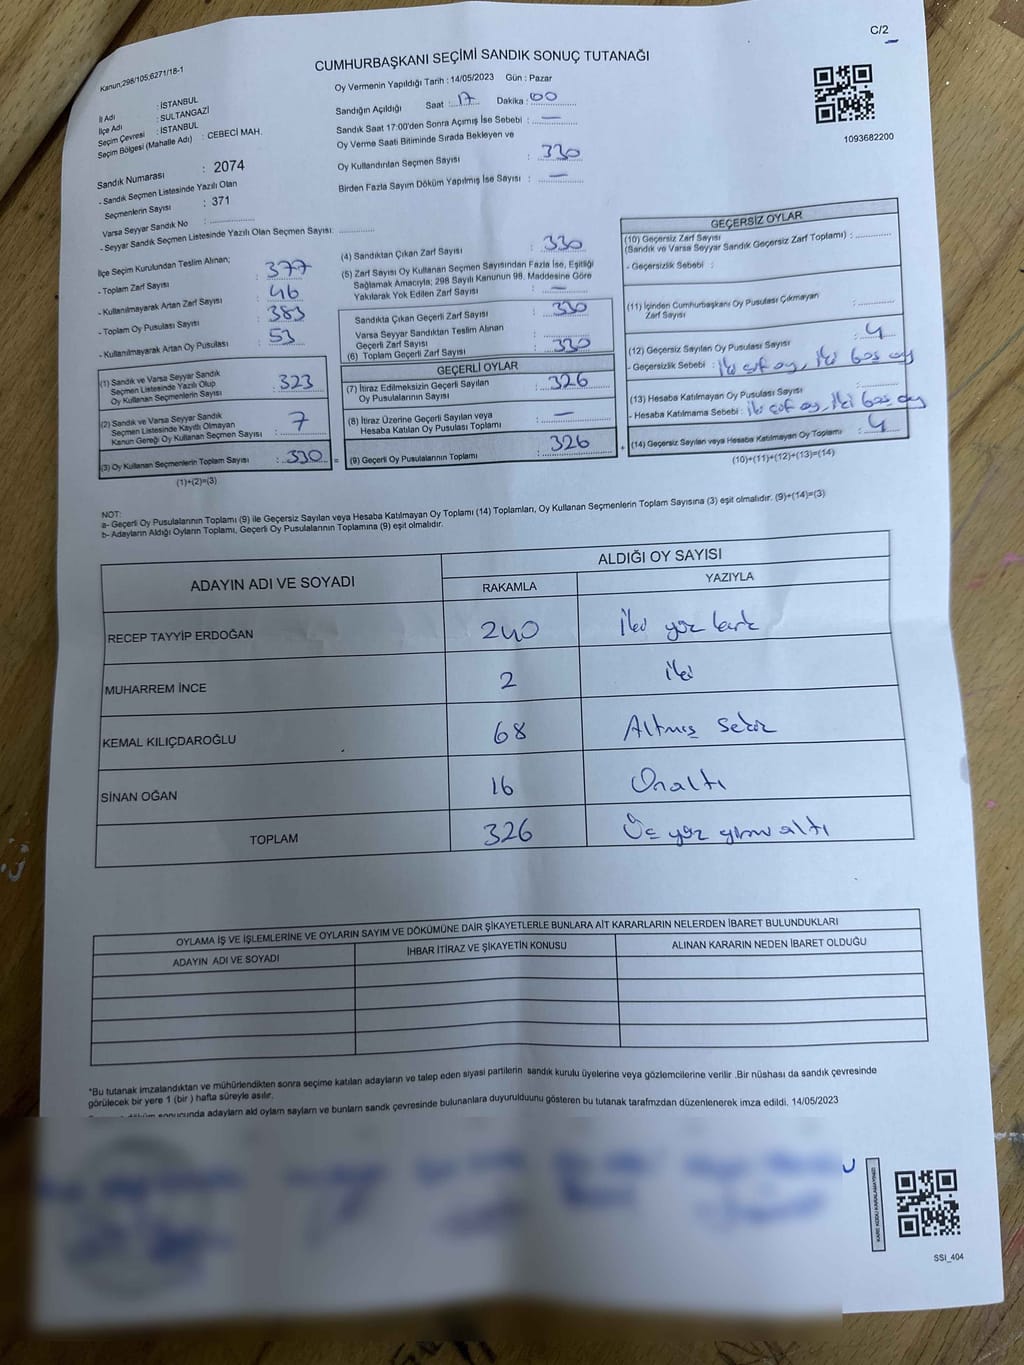 C/2
Kanun:298/105,6271/18-1
CUMHURBAŞKANI SEÇİMİ SANDIK SONUÇ TUTANAĞI
1093682200
İl Adı : İSTANBUL
İlçe Adı : SULTANGAZİ
Seçim Çevresi : İSTANBUL
Seçim Bölgesi (Mahalle Adı) : CEBECİ MAH.
Sandık Numarası : 2074
- Sandık Seçmen Listesinde Yazılı Olan
Seçmenlerin Sayısı : 371
Varsa Seyyar Sandık No :
- Seyyar Sandık Seçmen Listesinde Yazılı Olan Seçmen Sayısı:
Oy Vermenin Yapıldığı Tarih : 14/05/2023 Gün : Pazar
Sandığın Açıldığı Saat : 17 Dakika : 00
Sandık Saat 17:00'den Sonra Açımış İse Sebebi : —
Oy Verme Saati Bitiminde Sırada Bekleyen ve
Oy Kullandırılan Seçmen Sayısı : 330
Birden Fazla Sayım Döküm Yapılmış İse Sayısı : —
İlçe Seçim Kurulundan Teslim Alınan;
- Toplam Zarf Sayısı : 377
- Kullanılmayarak Artan Zarf Sayısı : 46
- Toplam Oy Pusulası Sayısı : 383
- Kullanılmayarak Artan Oy Pusulası : 53
(1) Sandık ve Varsa Seyyar Sandık
Seçmen Listesinde Yazılı Olup
Oy Kullanan Seçmenlerin Sayısı : 323
(2) Sandık ve Varsa Seyyar Sandık
Seçmen Listesinde Kayıtlı Olmayan
Kanun Gereği Oy Kullanan Seçmen Sayısı : 7
(3) Oy Kullanan Seçmenlerin Toplam Sayısı : 330 =
(1)+(2)=(3)
(4) Sandıktan Çıkan Zarf Sayısı : 330
(5) Zarf Sayısı Oy Kullanan Seçmen Sayısından Fazla İse, Eşitliği
Sağlamak Amacıyla; 298 Sayılı Kanunun 98. Maddesine Göre
Yakılarak Yok Edilen Zarf Sayısı : —
Sandıkta Çıkan Geçerli Zarf Sayısı : 330
Varsa Seyyar Sandıktan Teslim Alınan
Geçerli Zarf Sayısı :
(6) Toplam Geçerli Zarf Sayısı : 330
GEÇERLİ OYLAR
(7) İtiraz Edilmeksizin Geçerli Sayılan
Oy Pusulasının Sayısı : 326
(8) İtiraz Üzerine Geçerli Sayılan veya
Hesaba Katılan Oy Pusulası Toplamı : —
(9) Geçerli Oy Pusulalarının Toplamı : 326 +
GEÇERSİZ OYLAR
(10) Geçersiz Zarf Sayısı
(Sandık ve Varsa Seyyar Sandık Geçersiz Zarf Toplamı) :
- Geçersizlik Sebebi :
(11) İçinden Cumhurbaşkanı Oy Pusulası Çıkmayan
Zarf Sayısı :
(12) Geçersiz Sayılan Oy Pusulası Sayısı : 4
- Geçersizlik Sebebi : iki çift oy, iki boş oy
(13) Hesaba Katılmayan Oy Pusulası Sayısı :
- Hesaba Katılmama Sebebi : iki çift oy, iki boş oy
(14) Geçersiz Sayılan veya Hesaba Katılmayan Oy Toplamı : 4
(10)+(11)+(12)+(13)=(14)
NOT:
a- Geçerli Oy Pusulalarının Toplamı (9) ile Geçersiz Sayılan veya Hesaba Katılmayan Oy Toplamı (14) Toplamları, Oy Kullanan Seçmenlerin Toplam Sayısına (3) eşit olmalıdır. (9)+(14)=(3)
b- Adayların Aldığı Oyların Toplamı, Geçerli Oy Pusulalarının Toplamına (9) eşit olmalıdır.
ADAYIN ADI VE SOYADI ALDIĞI OY SAYISI
RAKAMLA YAZIYLA
RECEP TAYYİP ERDOĞAN 240 İki yüz kırk
MUHARREM İNCE 2 iki
KEMAL KILIÇDAROĞLU 68 Altmış sekiz
SİNAN OĞAN 16 Onaltı
TOPLAM 326 Üç yüz yirmi altı
OYLAMA İŞ VE İŞLEMLERİNE VE OYLARIN SAYIM VE DÖKÜMÜNE DAİR ŞİKAYETLERLE BUNLARA AİT KARARLARIN NELERDEN İBARET BULUNDUKLARI
ADAYIN ADI VE SOYADI İHBAR İTİRAZ VE ŞİKAYETİN KONUSU ALINAN KARARIN NEDEN İBARET OLDUĞU
*Bu tutanak imzalandıktan ve mühürlendikten sonra seçime katılan adayların ve talep eden siyasi partilerin sandık kurulu üyelerine veya gözlemcilerine verilir .Bir nüshası da sandık çevresinde
görülecek bir yere 1 (bir ) hafta süreyle asılır.
sonucunda adayların ald oylam sayları ve bunların sandk çevresinde bulunanlara duyurulduunu gösteren bu tutanak tarafmzdan düzenlenerek imza edildi. 14/05/2023
KARE KODU KARALAMAYINIZ
SSI_404